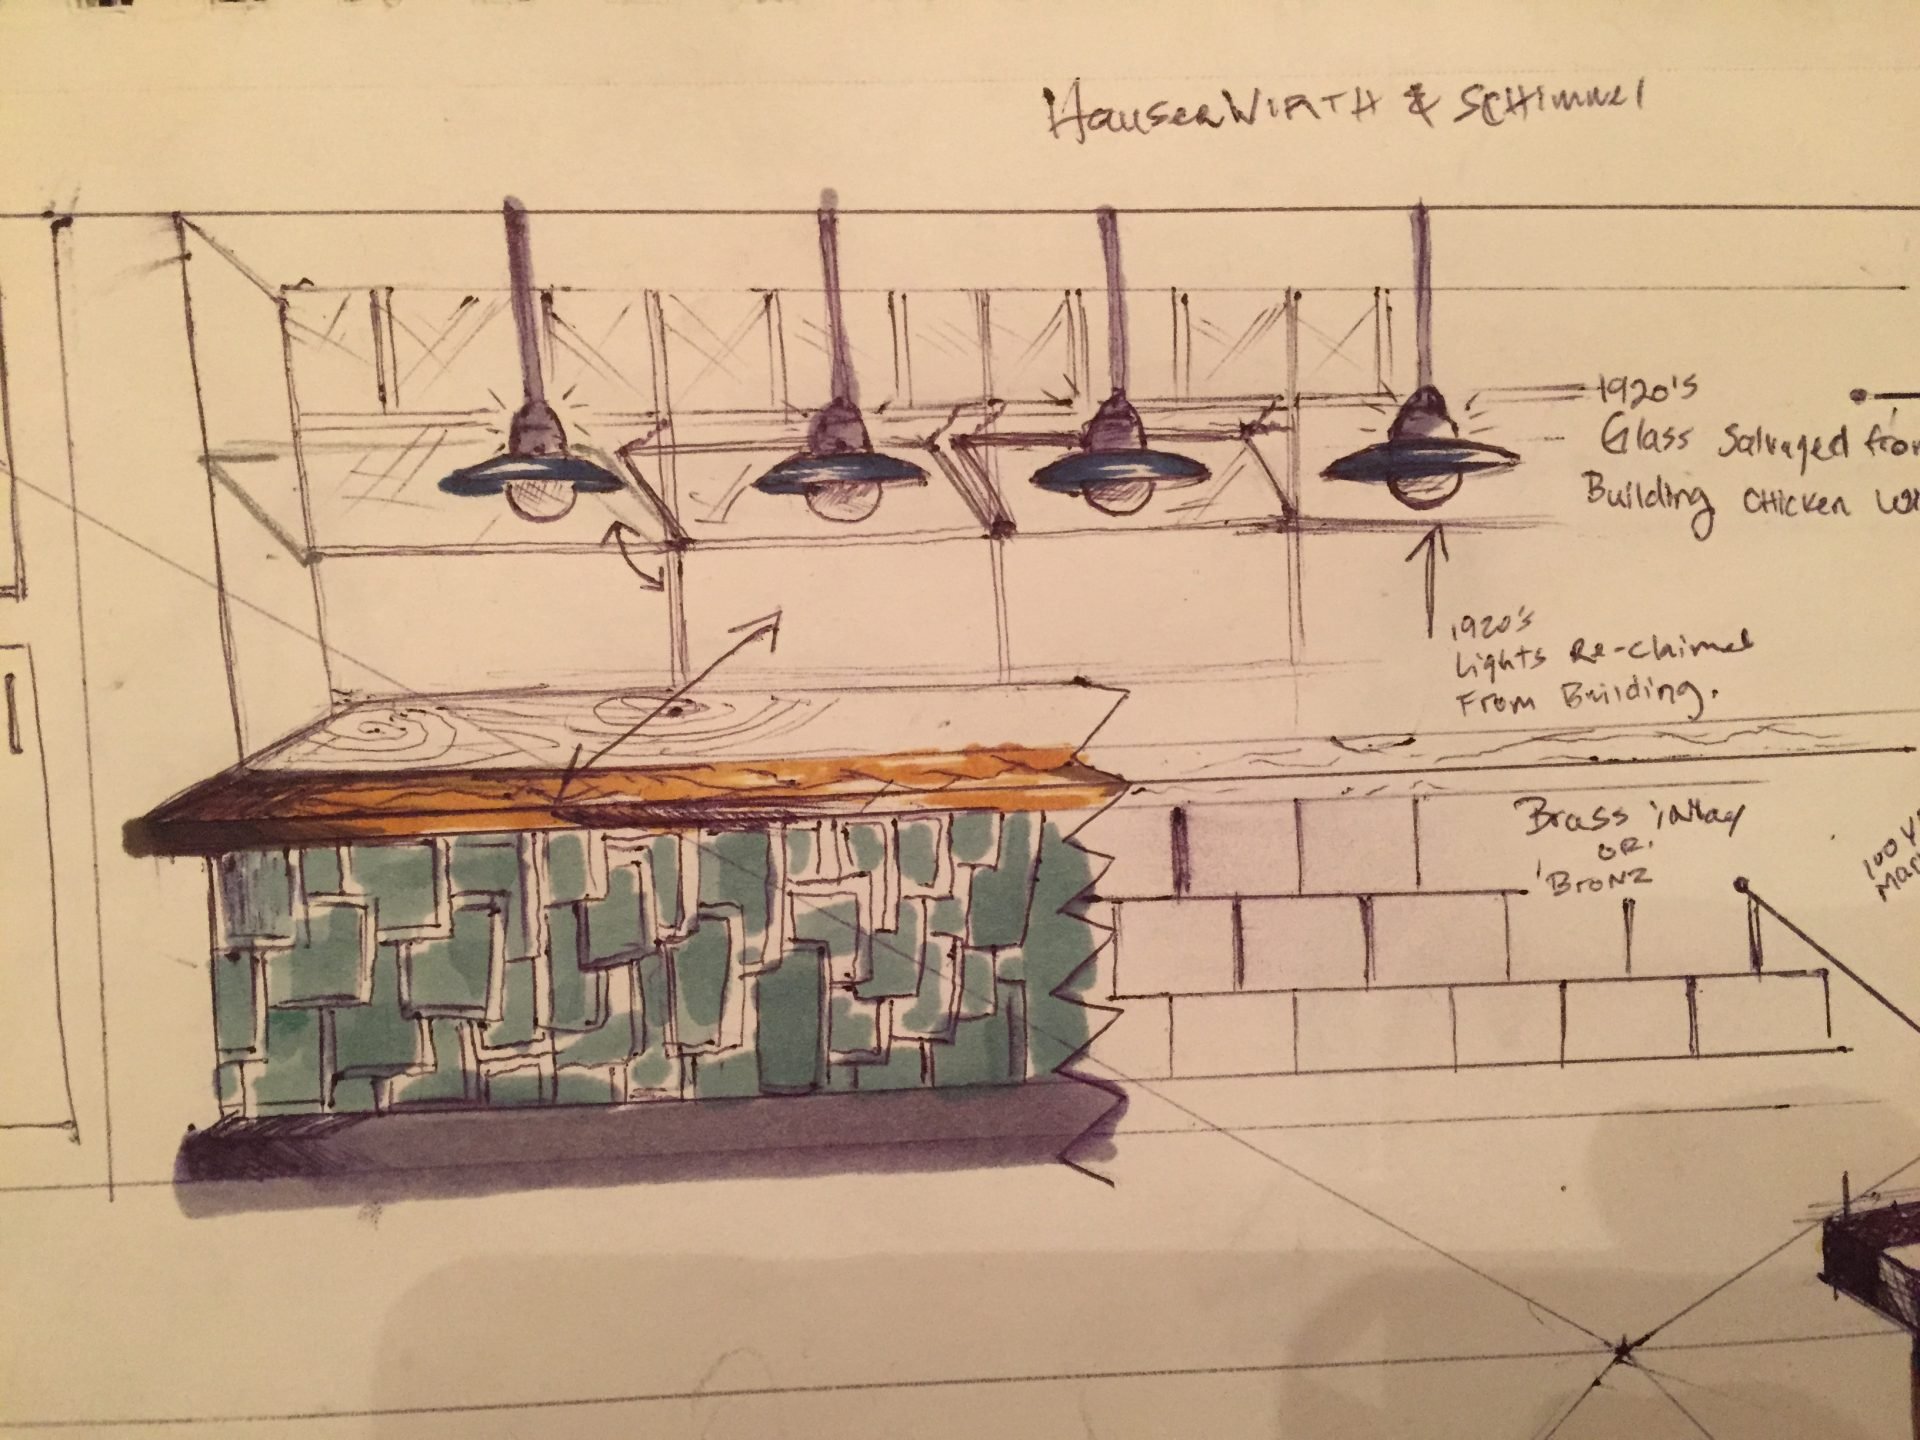 Hauser WIRTH & SCHIMMEL
1920's
Glass Salvaged from
Building CHICKEN
1920's
Lights Re-claimed
From Building.
Brass inlay
OR.
BRONZ
100